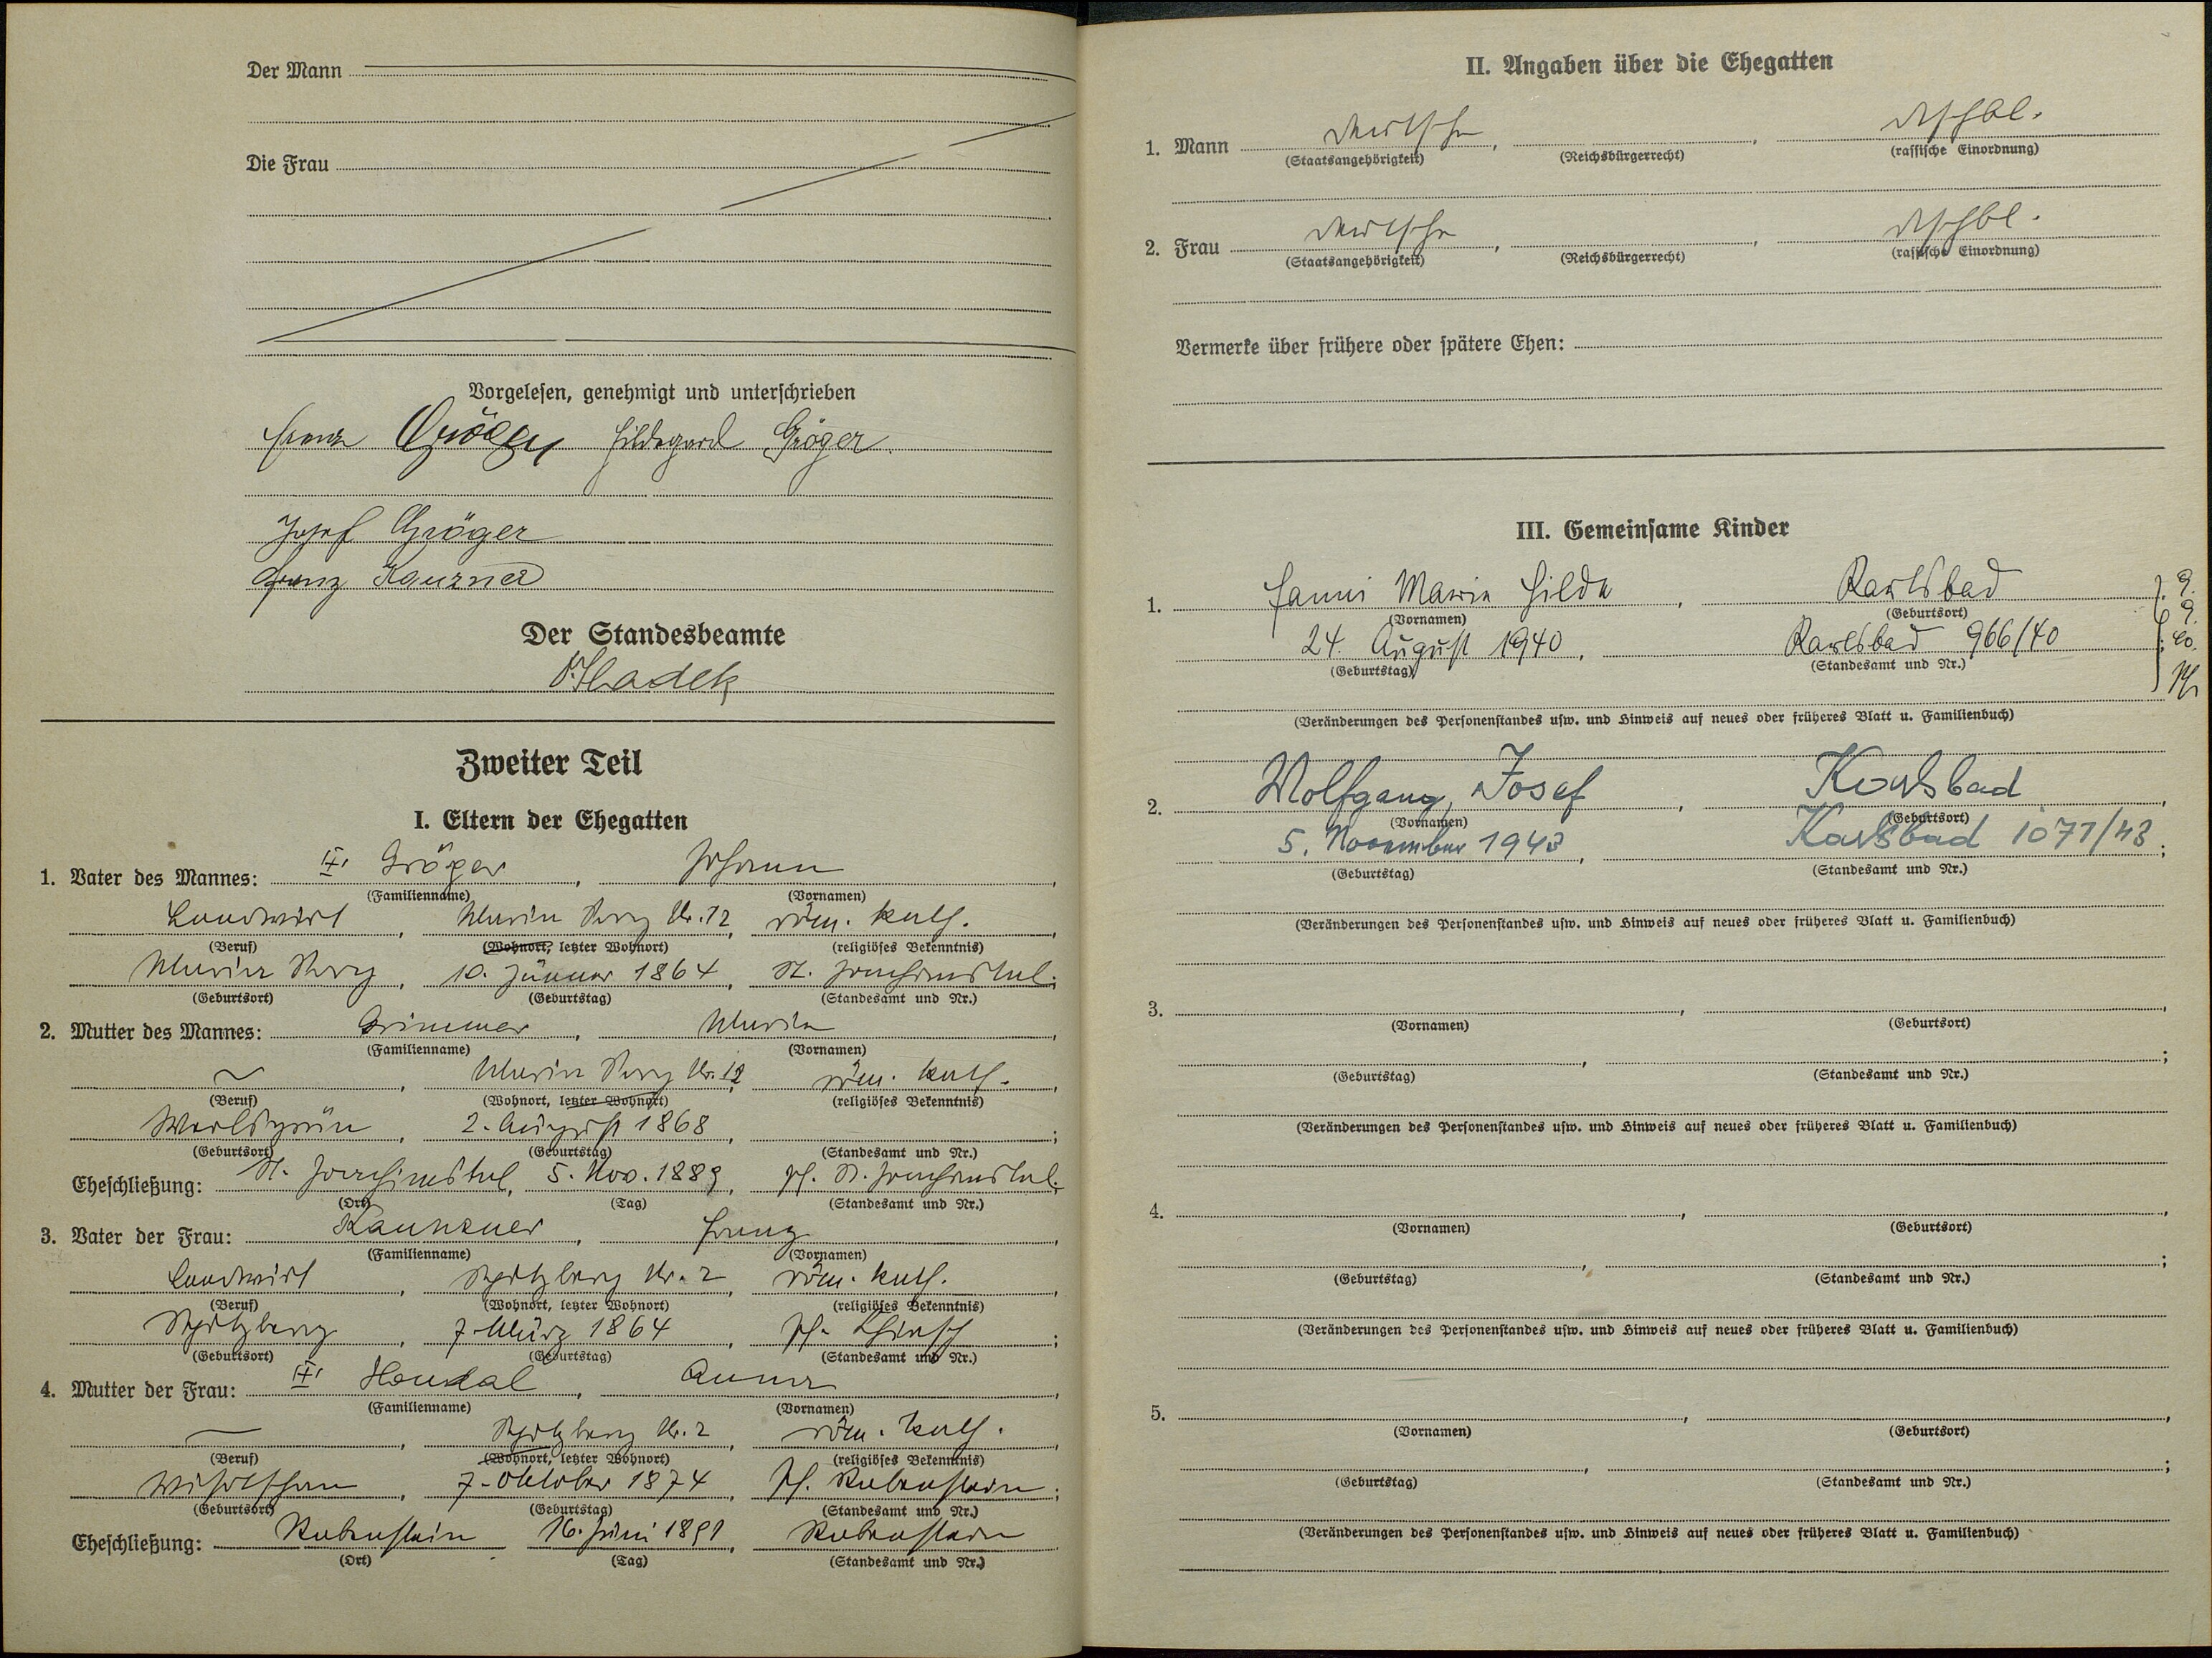 Der Mann
Die Frau
Vorgelesen, genehmigt und unterschrieben
Franz Gröger Hildegard Gröger
Josef Gröger
Franz Kauzner
Der Standesbeamte
Hladek
Zweiter Teil
I. Eltern der Ehegatten
1. Vater des Mannes: Gröger, Johann,
(Familienname) (Vornamen)
Landwirt, Maria Sorg Nr. 12, röm. kath.,
(Beruf) (Wohnort, letzter Wohnort) (religiöses Bekenntnis)
Maria Sorg, 10. Jänner 1864, St. Joachimstal;
(Geburtsort) (Geburtstag) (Standesamt und Nr.)
2. Mutter des Mannes: Grimmer, Maria,
(Familienname) (Vornamen)
Maria Sorg Nr. 12, röm. kath.,
(Beruf) (Wohnort, letzter Wohnort) (religiöses Bekenntnis)
Werlsgrün, 2. August 1868,
(Geburtsort) (Geburtstag) (Standesamt und Nr.)
Eheschließung: St. Joachimstal, 5. Nov. 1889, Pf. St. Joachimstal.
(Ort) (Tag) (Standesamt und Nr.)
3. Vater der Frau: Franz,
(Familienname) (Vornamen)
Landwirt, Spitzberg Nr. 2, röm. kath.,
(Beruf) (Wohnort, letzter Wohnort) (religiöses Bekenntnis)
Spitzberg, 7. März 1864, Pf.
(Geburtsort) (Geburtstag) (Standesamt und Nr.)
4. Mutter der Frau: Anna,
(Familienname) (Vornamen)
Spitzberg Nr. 2, röm. kath.,
(Beruf) (Wohnort, letzter Wohnort) (religiöses Bekenntnis)
7. Oktober 1874, Pf. Rabenstein;
(Geburtsort) (Geburtstag) (Standesamt und Nr.)
Eheschließung: Rabenstein 16. Juni 1891, Rabenstein
(Ort) (Tag) (Standesamt und Nr.)
II. Angaben über die Ehegatten
1. Mann deutsche, , dtschbl.
(Staatsangehörigkeit) (Reichsbürgerrecht) (rassische Einordnung)
2. Frau deutsche, , dtschbl.
(Staatsangehörigkeit) (Reichsbürgerrecht) (rassische Einordnung)
Vermerke über frühere oder spätere Ehen:
III. Gemeinsame Kinder
1. Hanni Maria Hilda, Karlsbad
(Vornamen) (Geburtsort)
24. August 1940, Karlsbad 966/40
(Geburtstag) (Standesamt und Nr.)
(Veränderungen des Personenstandes usw. und Hinweis auf neues oder früheres Blatt u. Familienbuch)
2. Wolfgang, Josef, Karlsbad,
(Vornamen) (Geburtsort)
5. November 1943, Karlsbad 1071/43;
(Geburtstag) (Standesamt und Nr.)
(Veränderungen des Personenstandes usw. und Hinweis auf neues oder früheres Blatt u. Familienbuch)
3.
(Vornamen) (Geburtsort)
(Geburtstag) (Standesamt und Nr.)
(Veränderungen des Personenstandes usw. und Hinweis auf neues oder früheres Blatt u. Familienbuch)
4.
(Vornamen) (Geburtsort)
(Geburtstag) (Standesamt und Nr.)
(Veränderungen des Personenstandes usw. und Hinweis auf neues oder früheres Blatt u. Familienbuch)
5.
(Vornamen) (Geburtsort)
(Geburtstag) (Standesamt und Nr.)
(Veränderungen des Personenstandes usw. und Hinweis auf neues oder früheres Blatt u. Familienbuch)